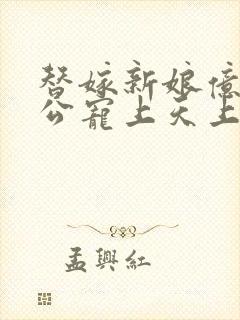 替嫁新娘億
公寵上天上
孟興紅